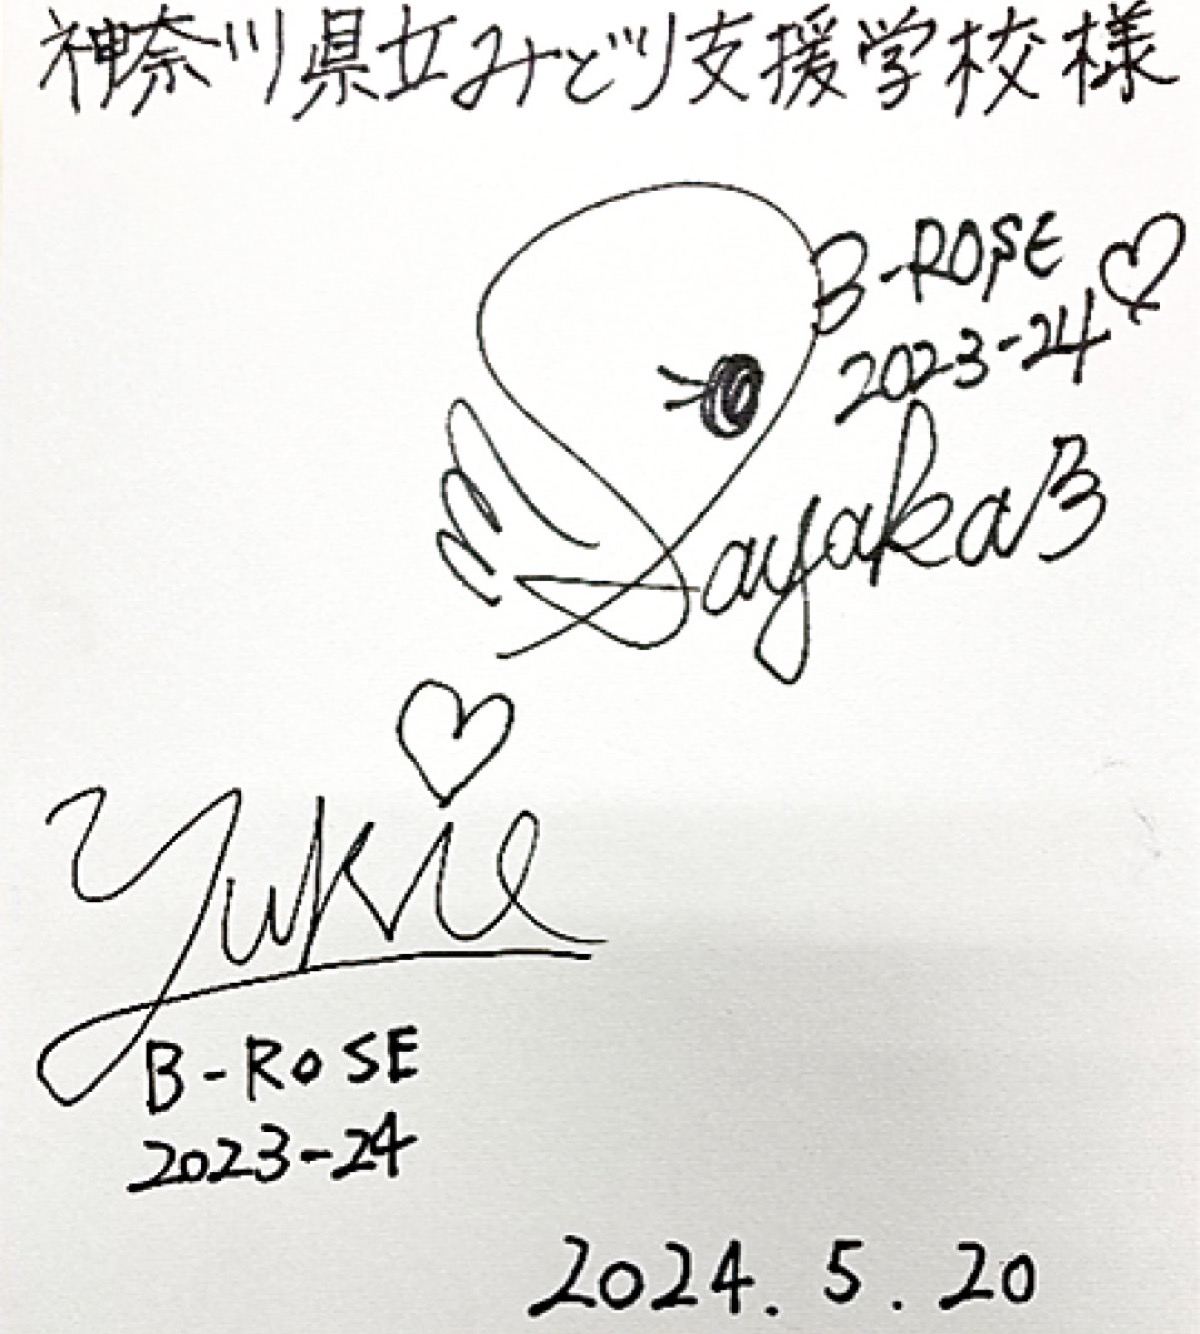 神奈川県立みどり支援学校様
B-ROSE
2023-24
Sayaka
Yukie
B-ROSE
2023-24
2024.5.20